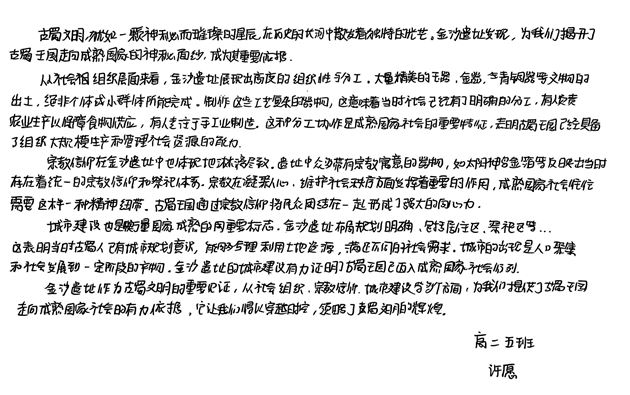 古蜀文明,宛如一颗神秘而璀璨的星辰,在历史的长河中散发着独特的光芒。金沙遗址发现,为我们揭开了
古蜀王国走向成熟国家的神秘面纱,成为其重要依据。
从社会组织层面来看,金沙遗址展现出高度的组织性与分工。大量精美的玉器、金器、青铜器等文物的
出土,绝非个体或小群体所能完成。制作这些工艺复杂的器物,这意味着当时社会已经有了明确的分工,有人负责
农业生产以保障食物供应,有人专门于手工业制造。这种分工协作是成熟国家社会的重要特征,表明古蜀王国已经具备
了组织大规模生产和管理社会资源的能力。
宗教信仰在金沙遗址中也体现地淋漓尽致。遗址中众多带有宗教寓意的器物,如太阳神鸟金箔等反映出当时
存在着统一的宗教信仰和祭祀体系。宗教在凝聚人心、维护社会秩序方面发挥着重要的作用,成熟国家社会往往
需要这样一种精神纽带。古蜀王国通过宗教信仰将民众团结在一起,形成了强大的向心力。
城市建设也是衡量国家成熟的重要标志。金沙遗址布局规划明确,包括居住区、祭祀区等...
这表明当时古蜀人已有城市规划意识,能够合理利用土地资源,满足不同的社会需求。城市的出现是人口聚集
和社会发展到一定阶段的产物。金沙遗址的城市建设有力证明了古蜀王国已迈入成熟国家社会行列。
金沙遗址作为古蜀文明的重要见证,从社会组织、宗教信仰、城市建设等多个方面,为我们提供了古蜀王国
走向成熟国家社会的有力依据,它让我们得以穿越时空,领略了古蜀文明的辉煌。
高二五班
许愿